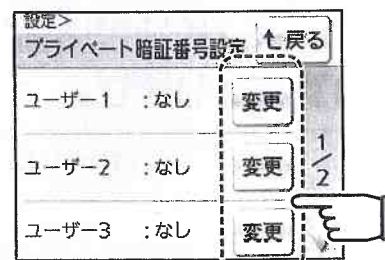 設定>
プライベート暗証番号設定 戻る
ユーザー1 :なし 変更
ユーザー2 :なし 変更
1/2
ユーザー3 :なし 変更